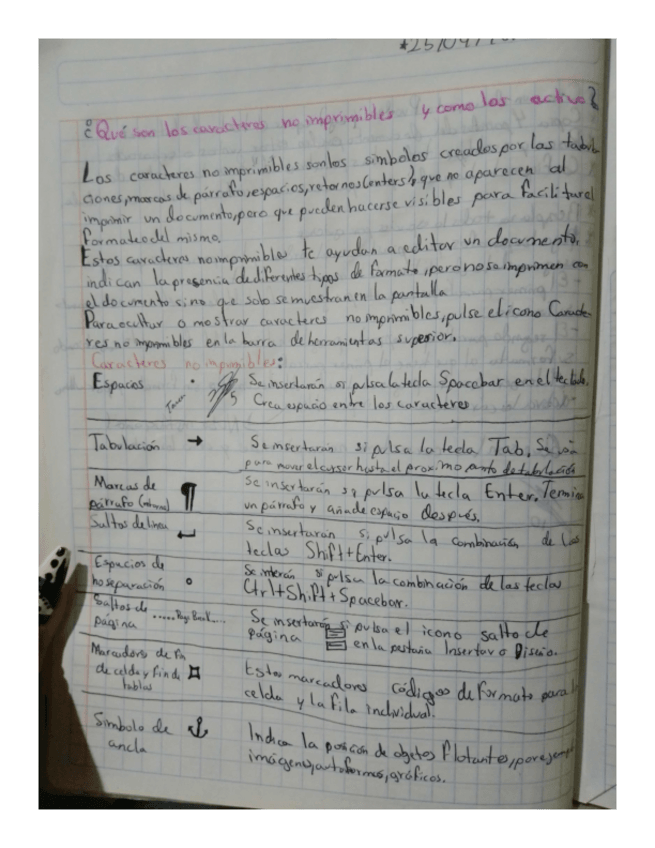 ¿Qué son los caracteres no imprimibles y como los activo?
Los caracteres no imprimibles son los símbolos creados por las tabula
ciones, marcas de párrafo, espacios, retornos (enters), que no aparecen al
imprimir un documento, pero que pueden hacerse visibles para facilitar el
formateo del mismo.
Estos caracteres no imprimibles te ayudan a editar un documento,
indican la presencia de diferentes tipos de formato, pero no se imprimen con
el documento sino que solo se muestran en la pantalla
Para ocultar o mostrar caracteres no imprimibles, pulse el icono Caracte-
res no imprimibles en la barra de herramientas superior.
Caracteres no imprimibles:
Espacos · Se insertarán si pulsa la tecla Spacobar en el teclado.
Crea espacio entre los caracteres
Tabulación → Se insertarán si pulsa la tecla Tab. Se
para mover el cursor hasta el proximo punto de tabulación
Marcas de ¶ Se insertarán si pulsa la tecla Enter. Termina
párrafo un párrafo y añade espacio después.
Saltos de linea ↵ Se insertaran si pulsa la combinación de las
teclas Shift+Enter.
Espacios de Se si pulsa la combinación de las teclas
no separación ° Ctrl+Shift+Spacebar.
Saltos de .....Page Break.... Se insertarán si pulsa el icono salto de
página página en la pestaña Insertar o Diseño.
Marcadores de fin Estos marcadores códigos de formato para la
de celda y fin de ¤ celda y la fila individual.
tablas
Símbolo de ⚓ Indica la posición de objetos flotantes, por ejemplo
ancla imágenes, autoformas, gráficos.